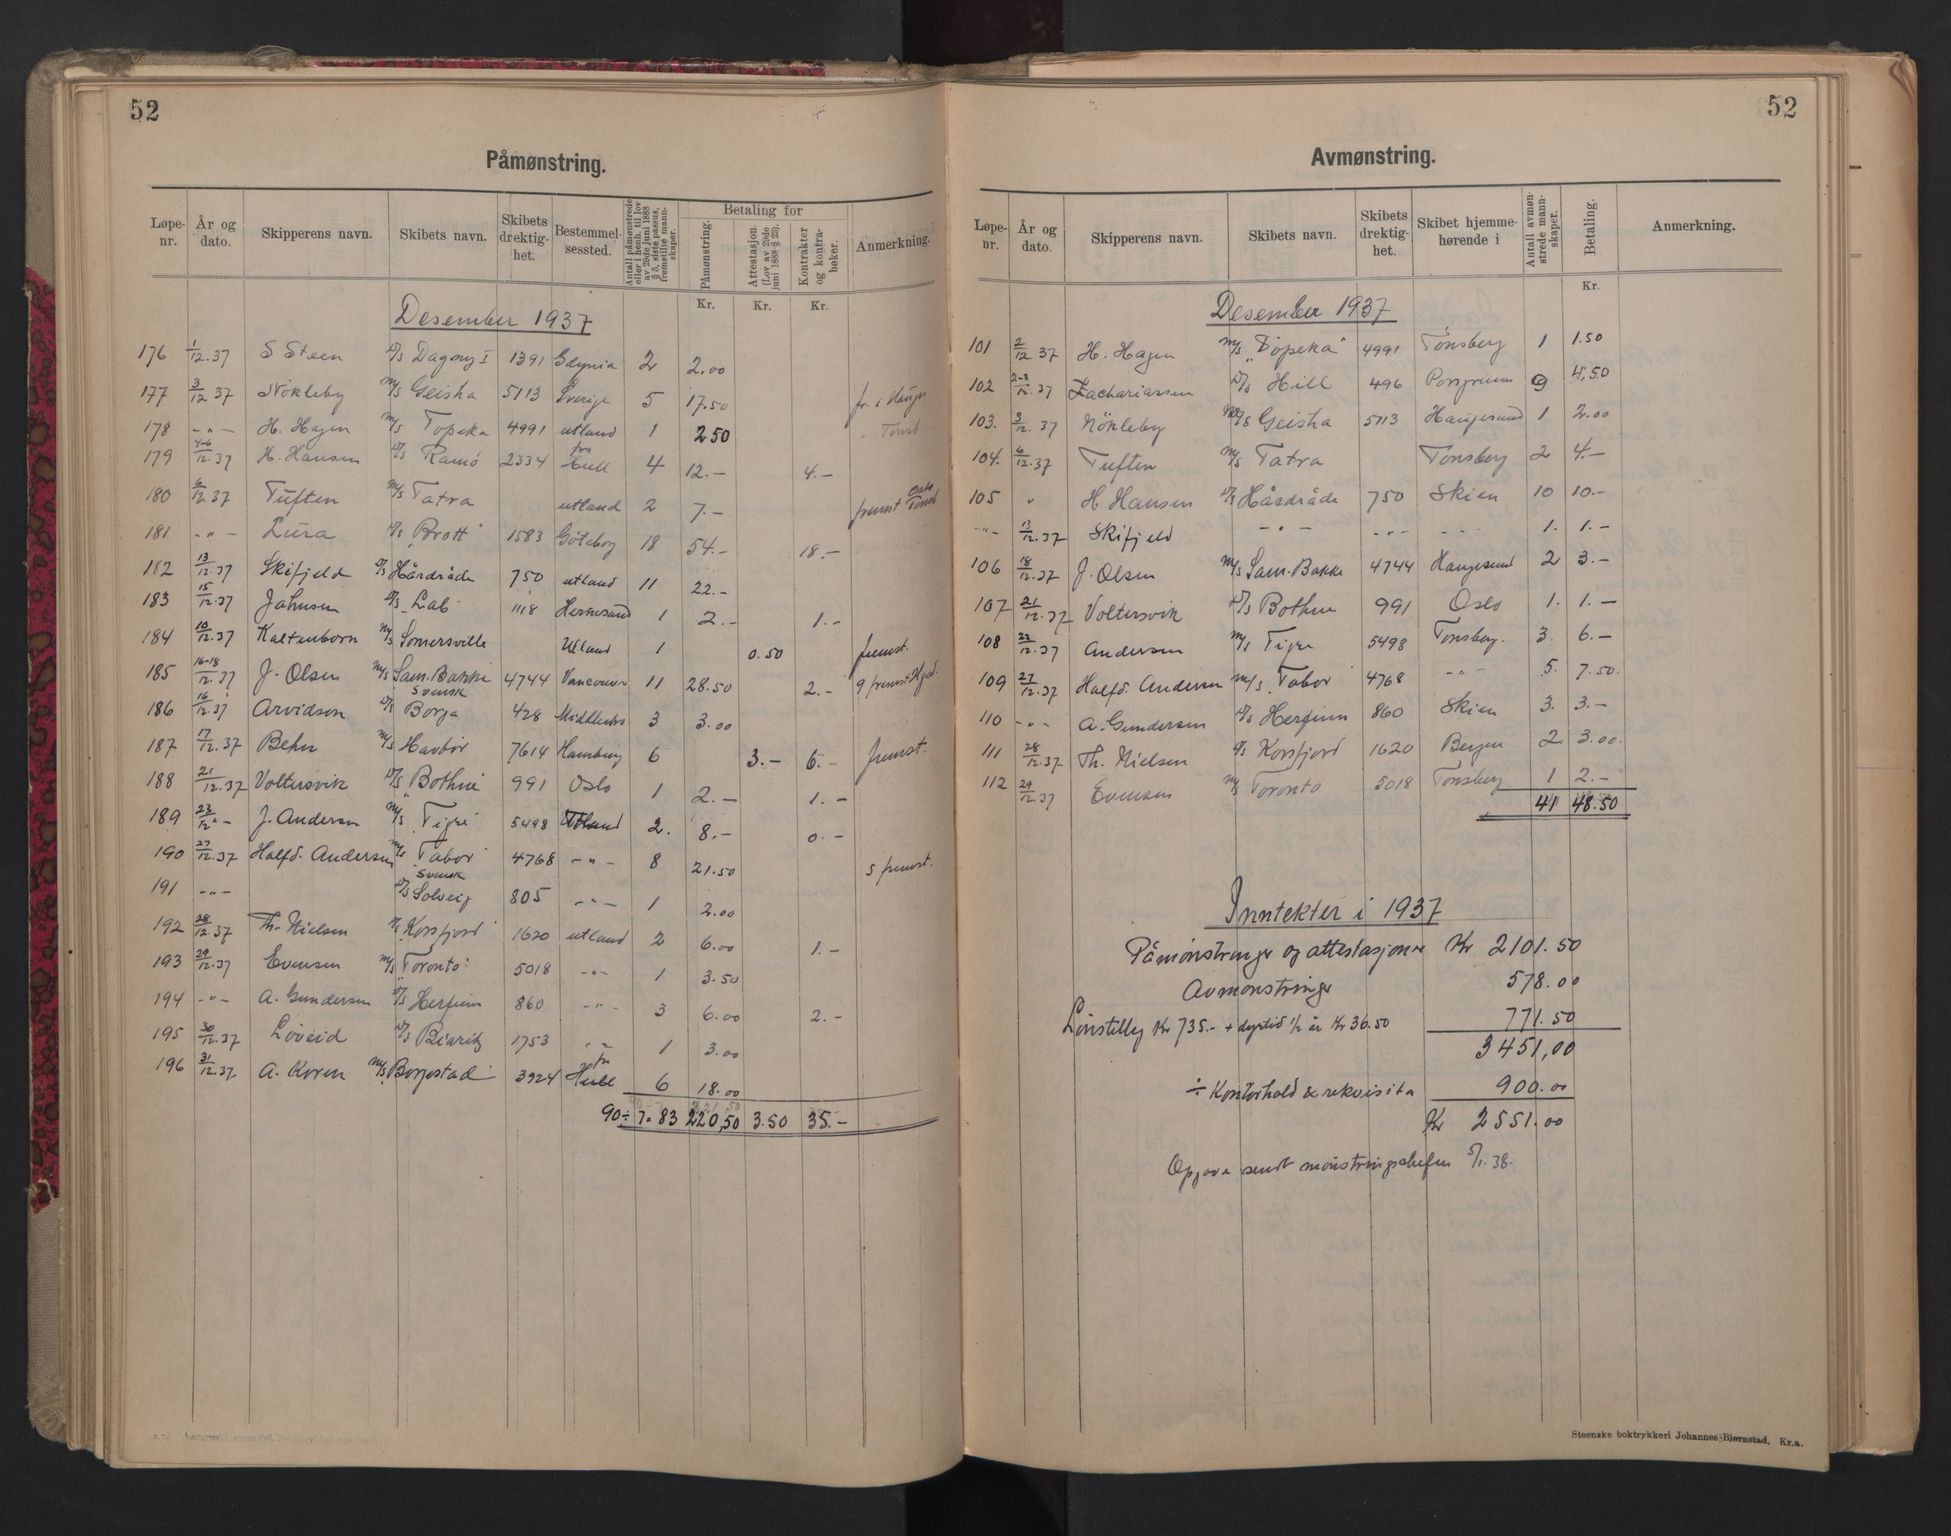 52
Påmønstring.
Løpe-nr. År og dato. Skipperens navn. Skibets navn. Skibets drektig-het. Bestemmel-sessted. Antall påmønstrede eller i henh. til lov av 29de juni 1888 § 5, siste passus, fremstilte mann-skaper. Betaling for Påmønstring. Attestasjon. (Lov av 29de juni 1888 § 23). Kontrakter og kontra-bøker. Anmerkning.
Kr. Kr. Kr.
Desember 1937
176 1/12.37 S Steen D/S Dagny I 1391 Gdynia 2 2.00
177 3/12 37 Nökleby M/S Geisha 5113 Sverige 5 17.50 fr. i Haugs
178 -"- H. Hagen M/S Topeka 4991 utland 1 2 50 " Tönsb
179 4-6/12.37 H. Hansen D/S Ramö 2334 fra Hull 4 12.- 4.-
180 6/12.37 Tuften M/S Tatra utland 2 7.- fremst Oslo Tönsb
181 -"- Lura D/S "Brott" 1583 Göteborg 18 54.- 18.-
182 13/12.37 Skifjeld D/S Hårdråde 750 utland 11 22.-
183 15/12.37 Johnsen D/S Lab 1118 Hernösand 1 2.- 1.-
184 10/12.37 Kaltenborn M/S Somersville Utland 1 0.50 fremst.
185 16-18/12.37 J. Olsen M/S Sam. Bakke 4744 Vancouver 11 28.50 2.- 9 fremst Hgsd.
186 16/12.37 Arvidson svensk D/S Borga 428 Middlesbro 3 3.00
187 17/12.37 Behn M/S Havbör 7614 Hamburg 6 3.- 6.- fremst.
188 21/12.37 Voltersvik D/S "Bothne" 991 Oslo 1 2.- 1.-
189 23/12 "- J. Andersen M/S "Tigre" 5498 Utland 2. 8.- 0.-
190 27/12.37 Halfd. Andersen M/S "Tabor" 4768 -"- 8 21.50 5 fremst.
191 -"- svensk D/S Solveig 805 -"- 1 2.00
192 28/12.37 Th. Nielsen D/S Korsfjord 1620 utland 2 6.00 1.-
193 29/12.37 Evensen M/S "Toronto" 5018 -"- 1 3.50
194 -"- A. Gundersen D/S Herfinn 860 -"- 3 6.00 2.-
195 30/12.37 Löveid D/S Biaritz 1753 -"- 1 3.00
196 31/12.37 A. Koren M/S Borgestad 3924 fra Hull 6 18.00
90÷ 7= 83 220,50 3.50 35.-
52
Avmønstring.
Løpe-nr. År og dato. Skipperens navn. Skibets navn. Skibets drektig-het. Skibet hjemme-hørende i Antall avmøn-strede mann-skaper. Betaling. Anmerkning.
Kr.
Desember 1937
101 2/12 37 H. Hagen M/S "Topeka" 4991 Tönsberg 1 1.50
102 2-3/12.37 Zachariassen D/S Hill 496 Porsgrunn 9 4.50
103. 3/12.37 Nökleby M/S Geisha 5113 Haugesund 1 2.00
104. 6/12.37 Tuften M/S Tatra Tönsberg 2 4.-
105 " H Hansen D/S Hårdråde 750 Skien 10 10.-
-"- 13/12.37 Skifjeld -"- -"- -"- 1. 1.-
106 18/12.37 J. Olsen M/S Sam. Bakke 4744 Haugesund 2 3.-
107 21/12.37 Voltersvik D/S Bothne 991 Oslo 1. 1.-
108 22/12.37 Andersen M/S Tigre 5498 Tönsberg. 3. 6.-
109 27/12.37 Halfd. Andersen M/S "Tabor" 4768 -"- 5. 7.50.
110 -"- A. Gundersen D/S Herfinn 860 Skien 3. 3.-
111 28/12.37 Th. Nielsen D/S Korsfjord 1620 Bergen 2 3.00.
112 29/12.37 Evensen M/S Toronto 5018 Tönsberg 1 2.-
41 48.50
Inntekter i 1937
Påmönstringer og attestasjoner Kr 2101.50
Avmönstringer 578.00
Lönstilleg Kr 735.- + dyrtid 1/2 år Kr 36.50 771.50
3451,00
÷ Kontorhold & rekvisita 900.00
Kr 2551.00
Opgave sendt mönstringschefen 5/1.38.
Steenske boktrykkeri Johannes Bjørnstad. Kr.a.